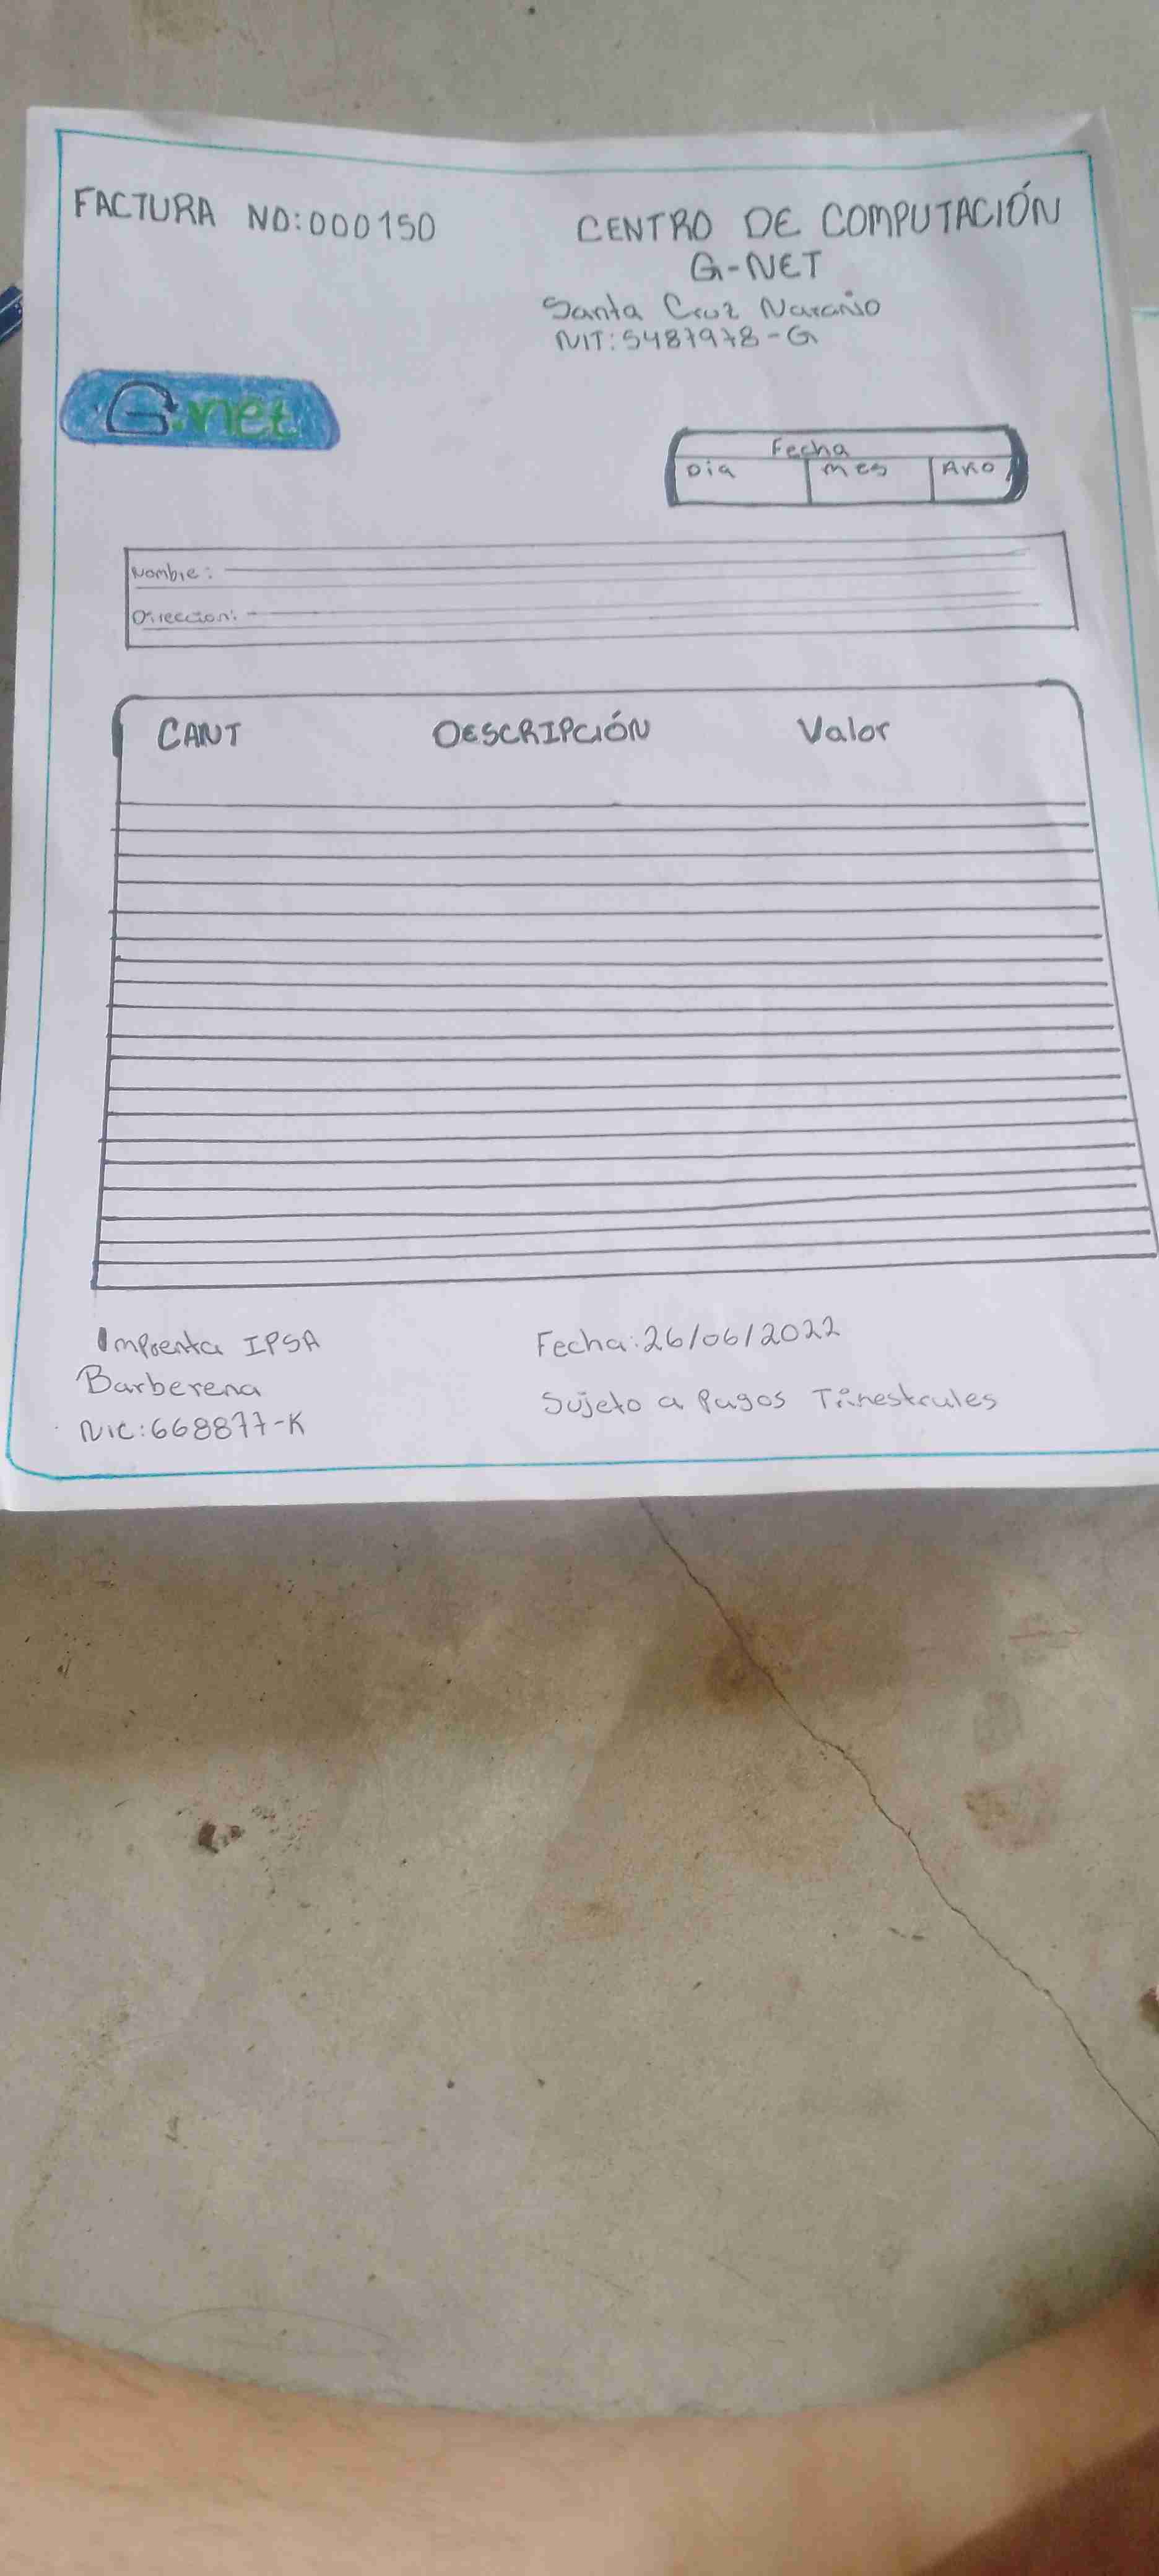 FACTURA NO:000150
CENTRO DE COMPUTACIÓN
G-NET
Santa Cruz Naranjo
NIT:5487978-G
G.net
Fecha
Dia mes Año
Nombre:
Direccion:
CANT DESCRIPCIÓN Valor
Imprenta IPSA
Barberena
NIC:668877-K
Fecha:26/06/2022
Sujeto a Pagos Trimestrales